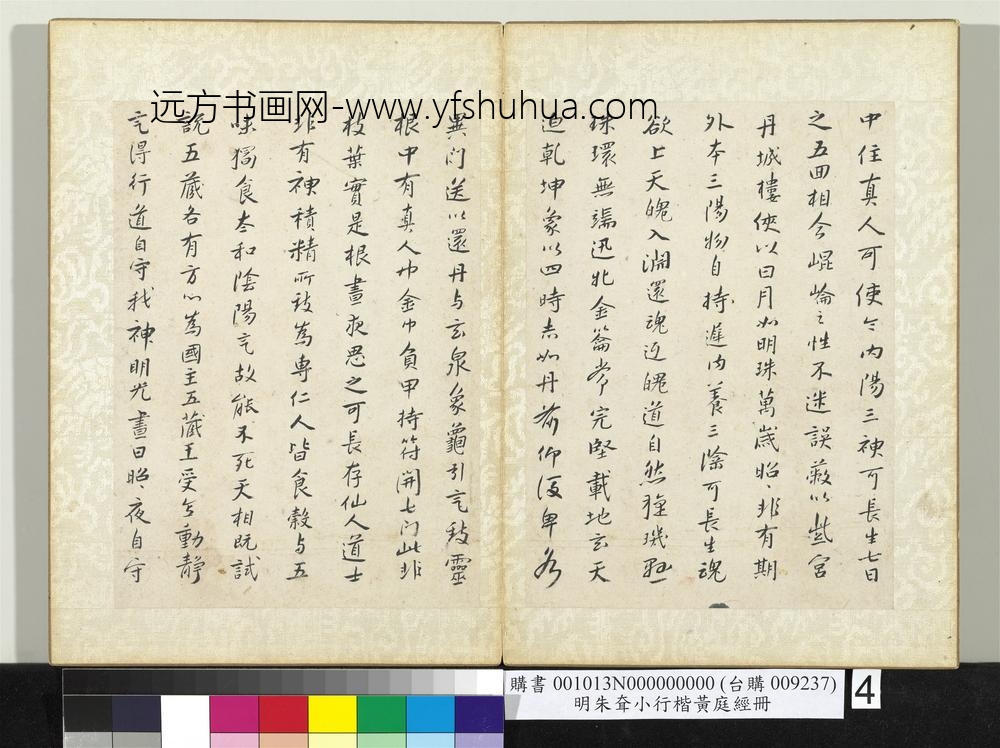 远方书画网-www.yfshuhua.com
中住真人可使令內陽三神可長生七日
之五回相合崐崙之性不迷誤蔽以紫宮
丹城樓俠以日月如明珠萬歲昭昭非有期
外本三陽物自持遲內養三陰可長生魂
欲上天魄入淵還魂返魄道自然璇璣懸
珠環無端迅牝金籥常完堅載地玄天
迫乾坤象以四時赤如丹前仰後卑各
異門送以還丹与玄泉象龜引气致靈
根中有真人巾金巾負甲持符開七门此非
枝葉實是根晝夜思之可長存仙人道士
非有神積精所致為專仁人皆食穀与五
味獨食太和陰陽气故能不死天相既試
說五藏各有方心為國主五藏王受意動靜
气得行道自守我神明光晝日昭昭夜自守
購書 001013N000000000 (台購 009237)
明朱耷小行楷黃庭經冊
4